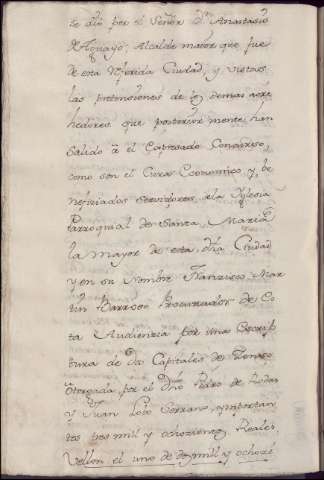 se dio por el Señor Dn Anastasio
de Aguayo, Alcalde maior que fue
de esta referida Ciudad, y vistas
las pretensiones de los demas acre
hedores que posteriormente han
salido a el Expresado Concurso,
como son el Cura Economico y Be
nefiziados Servidores de la Yglesia
Parroquial de Santa Maria
la mayor de esta dha Ciudad
y en su Nombre Franzisco Mar
tin Barroso Procurador de Es
ta Audienzia por una Escrip
tura de dos Capitales de Zenso
otorgada por el dho Pedro de Rodas
y Juan Lopez Serrano, ymportan
tes tres mil y ochozientos Reales
Vellon el uno de dos mil y ochozi